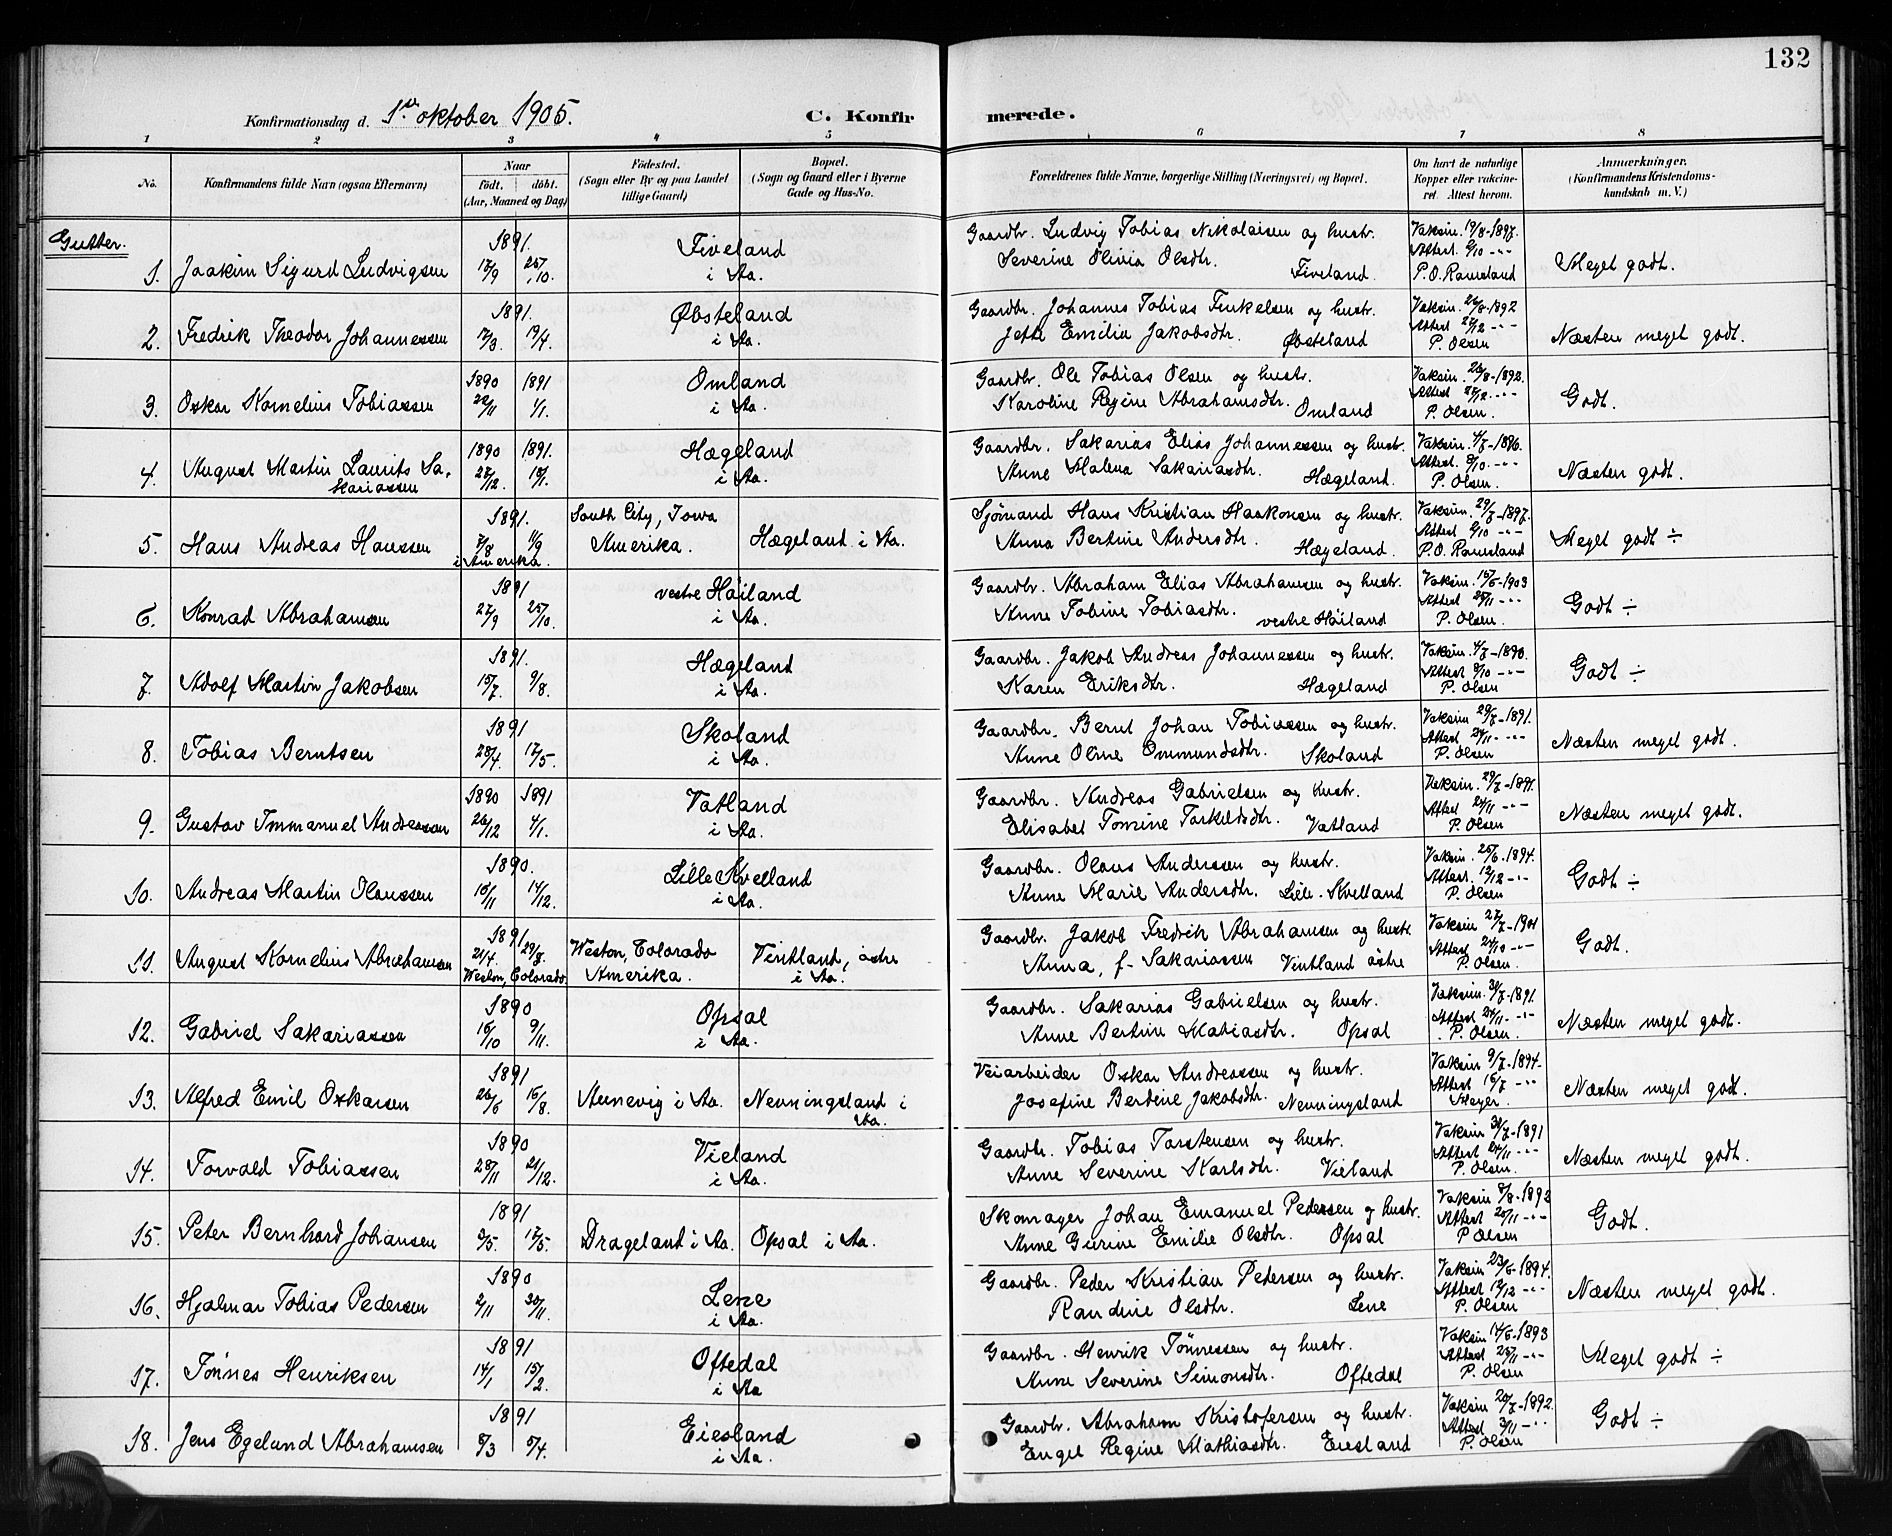 132
Konfirmationsdag d. 1ste oktober 1905. C. Konfirmerede.
1 2 3 4 5 6 7 8
No. Konfirmandens fulde Navn (ogsaa Efternavn) Naar födt, döbt. (Aar, Maaned og Dag) Födested. (Sogn eller By og paa Landet tillige Gaard) Bopæl. (Sogn og Gaard eller i Byerne Gade og Hus-No. Forældrenes fulde Navne, borgerlige Stilling (Næringsvei) og Bopæl. Om havt de naturlige Kopper eller vakcineret. Attest herom. Anmærkninger. (Konfirmandens Kristendomskundskab m. V.)
Gutter.
1. Joakim Sigurd Ludvigsen 1891. 17/9 25/10. Fiveland i Aa. Gaardbr. Ludvig Tobias Nikolaisen og hustr.
Severine Olivia Olsdtr. Fiveland. Vaksin. 19/8-1897. Attest 6/10 -"- P. O. Ramsland Meget godt.
2. Fredrik Theodor Johannessen 1891. 17/3 19/4. Øbsteland i Aa. Gaardbr. Johannes Tobias Terkelsen og hustr.
Jette Emilie Jakobsdtr. Øbsteland Vaksin. 26/8-1892 Attest 27/12 -"- P. Olsen Næsten meget godt.
3. Oskar Kornelius Tobiassen 1890 22/11 1891 1/1. Omland i Aa. Gaardbr. Ole Tobias Olsen og hustr.
Karoline Regine Abrahamsdtr. Omland Vaksin. 26/8-1892. Attest 27/12. -"- P. Olsen. Godt.
4. August Martin Laurits Sakariassen 1890 27/12. 1891. 18/1. Hægeland i Aa. Gaardbr. Sakarias Elias Johannessen og hustr.
Anne Malena Sakariasdtr. Hægeland. Vaksin. 4/7-1896. Attest 8/10. -"- P. Olsen. Næsten godt.
5. Hans Andreas Hanssen 1891. 7/8 11/9 i Amerika. South City, Iowa Amerika. Hægeland i Aa. Sjømand Hans Kristian Haakonsen og hustr.
Anna Bertine Andersdtr. Hægeland. Vaksin. 29/7-1897. Attest 6/10 -"- P. O. Ramsland Meget godt ÷
6. Konrad Abrahamsen 1891 27/9 25/10. vestre Høiland i Aa. Gaardbr. Abraham Elias Abrahamsen og hustr.
Anne Tobine Tobiasdtr. vestre Høiland Vaksin. 15/6-1903 Attest 28/11 -"- P. Olsen. Godt ÷
7. Adolf Martin Jakobsen 1891. 15/7. 9/8. Hægeland i Aa. Gaardbr. Jakob Andreas Johannessen og hustr.
Karen Eriksdtr. Hægeland Vaksin. 4/7-1896. Attest 8/10 -"- P. Olsen Godt ÷
8. Tobias Berntsen 1891 28/4. 17/5. Skoland i Aa. Gaardbr. Bernt Johan Tobiassen og hustr.
Anne Oline Ommundsdtr. Skoland Vaksin 29/7-1891. Attest 24/11 -"- P. Olsen Næsten meget godt.
9. Gustav Immanuel Andreassen 1890 26/12 1891 4/1. Vatland i Aa. Gaardbr. Andreas Gabrielsen og hustr.
Elisabet Tomine Torkildsdtr. Vatland Vaksin. 29/7-1891. Attest 24/11 -"- P. Olsen Næsten meget godt.
10. Andreas Martin Olaussen 1890. 16/11 14/12. Lille Kvelland i Aa. Gaardbr. Olaus Anderssen og hustr.
Anne Marie Andersdtr. Lille-Kvelland Vaksin. 25/6-1894. Attest. 12/12 -"- P. Olsen Godt ÷
11. August Kornelius Abrahamsen 1891 21/4. 29/8. Weston, Colorado Weston, Colorado Amerika. Vintland, østre i Aa. Gaardbr. Jakob Fredrik Abrahamsen og hustr
Anna, f- Sakariassen Vintland østre Vaksin 27/7-1901 Attest 24/10 -"- P. Olsen. Godt.
12. Gabriel Sakariassen 1890 16/10 9/11. Opsal i Aa. Gaardbr. Sakarias Gabrielsen og hustr.
Anne Bertine Mathiasdtr. Opsal Vaksin. 31/7-1891. Attest 24/11 -"- P. Olsen. Næsten meget godt.
13. Alfred Emil Oskarsen 1891 26/6 16/8. Aunevig i Aa. Nevningsland i Aa. Veiarbeider Oskar Andreassen og hustr.
Josefine Berdine Jakobsdtr. Nevningsland Vaksin 9/7-1894. Attest 16/7 -"- Meyer. Næsten meget godt.
14. Torvald Tobiassen 1890 28/11 21/12. Vieland i Aa. Gaardbr. Tobias Torstensen og hustr.
Anne Severine Karlsdtr. Vieland Vaksin 31/7-1891 Attest 24/11 -"- P. Olsen. Næsten meget godt.
15. Peter Bernhard Johansen 1891 2/5. 17/5. Drageland i Aa. Opsal i Aa. Skomager Johan Emanuel Pedersen og hustr.
Anne Gurine Emilie Olsdtr. Opsal Vaksin 8/8-1892 Attest 20/11 -"- P Olsen Godt.
16. Hjalmar Tobias Pedersen 1890 2/11 30/11. Lene i Aa. Gaardbr. Peder Kristian Pedersen og hustr.
Randine Olsdtr. Lene Vaksin 23/6-1894. Attest 12/12 -"- P. Olsen Næsten meget godt.
17. Tønnes Henriksen 1891 14/1 15/2. Oftedal i Aa Gaardbr. Henrik Tønnessen og hustr.
Anne Severine Simonsdtr. Oftedal Vaksin 14/6-1893 Attest 25/11 -"- P. Olsen Meget godt ÷
18. Jens Egeland Abrahamsen 1891 8/3 5/4. Eiesland i Aa. Gaardbr. Abraham Kristofersen og hustr.
Engel Regine Mathiasdtr. Eiesland Vaksin 20/7-1892. Attest. 3/11 -"- P. Olsen Godt ÷